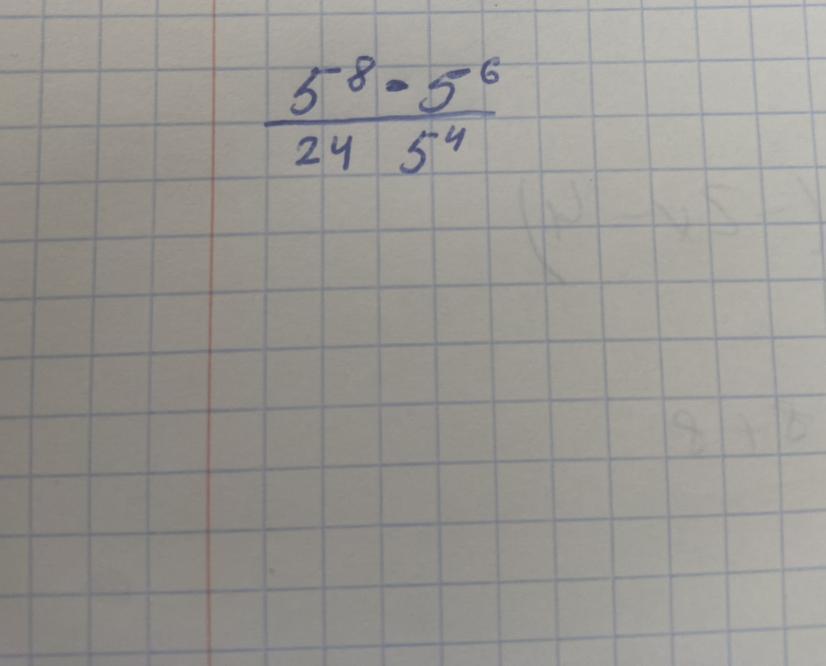 5⁸ - 5⁶
24 5⁴